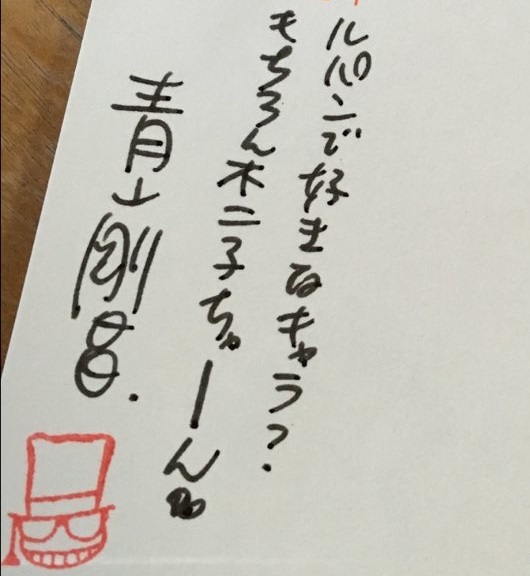 ルパンで好きなキャラ?
もちろん不二子ちゃーん♥
青山剛昌.